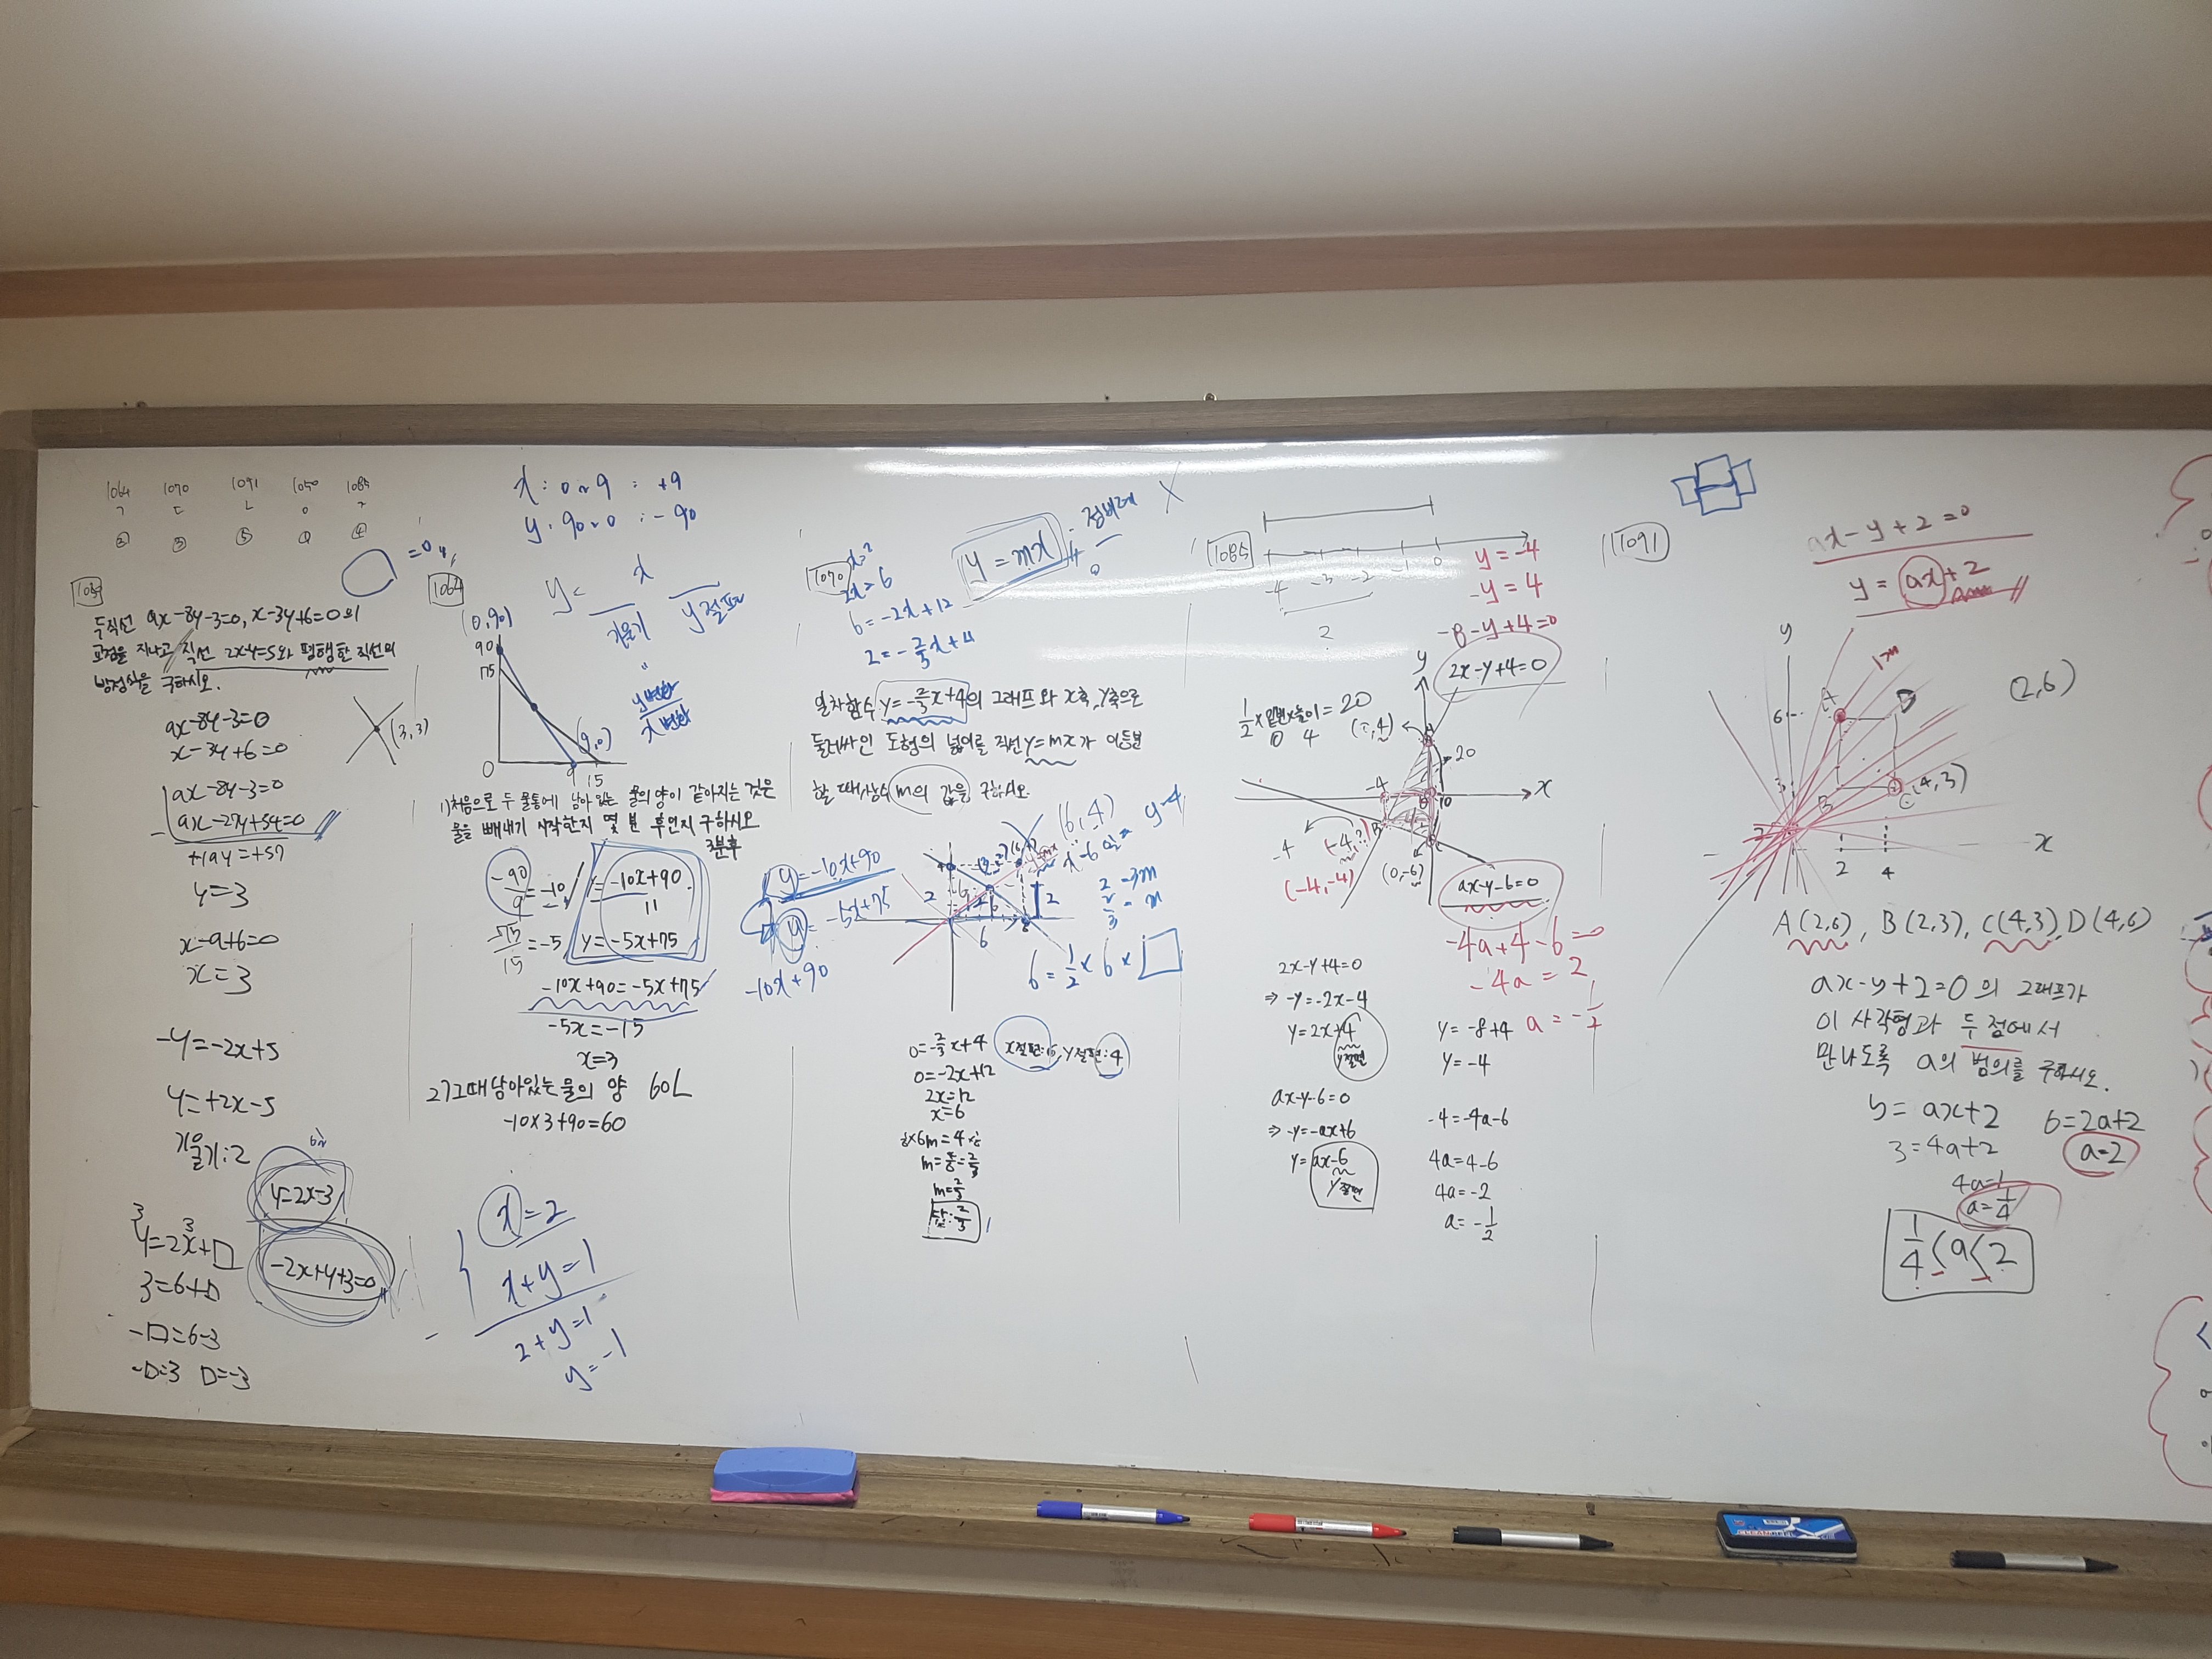 1064 1070 1091 1050 1085
② ③ ⑤ ① ④
두직선 9x-8y-3=0, x-3y+6=0의
교점을 지나고 직선 2x-y=5와 평행한 직선의
방정식을 구하시오.
9x-8y-3=0
x-3y+6=0
(3,3)
9x-8y-3=0
9x-27y+54=0
+19y=+57
y=3
x-9+6=0
x=3
-y=-2x+5
y=+2x-5
기울기:2
y=2x-3
y=2x+□
3 3
-2x+y+3=0
3=6+□
-□=6-3
-□=3 □=-3
x:0~9 : +9
y:90~0 : -90
1064
y= x
기울기 y절편
"
y변화
x변화
(0,90)
90
75
(9,0)
0 9 15
1)처음으로 두 물통에 남아있는 물의 양이 같아지는 것은
물을 빼내기 시작한지 몇 분 후인지 구하시오
3분후
-90/9=-10
y=-10x+90
-75/15=-5
y=-5x+75
-10x+90=-5x+75
-5x=-15
x=3
2)그때 남아있는 물의 양 60L
-10×3+90=60
x=2
x+y=1
2+y=1
y=-1
1070
2x=6
6=-2x+12
2=-2/3x+4
y=mx
정비례
일차함수 y=-2/3x+4의 그래프와 x축, y축으로
둘러싸인 도형의 넓이를 직선 y=mx가 이등분
할 때, 상수 m의 값을 구하시오.
y=-10x+90
y=-5x+75
-10x+90
(6,4)
2=3m
2/3=m
6=1/2×6×□
0=-2/3x+4
x절편:6, y절편:4
0=-2x+12
2x=12
x=6
1/2×6m=4×1/2
m=4/6=2/3
m=2/3
답:2/3
1085
-4 -3 -2 -1 0
2
y=-4
-y=4
-8-y+4=0
y
2x-y+4=0
1/2×밑변×높이=20
10 4
20
-4
10
x
-4
(-4,-4)
(0,-6)
ax-y-6=0
-4a+4-6=0
-4a=2
a=-1/2
2x-y+4=0
⇒-y=-2x-4
y=2x+4
y절편
y=-8+4
y=-4
ax-y-6=0
⇒-y=-ax+6
y=ax-6
y절편
-4=-4a-6
4a=4-6
4a=-2
a=-1/2
1091
ax-y+2=0
y=ax+2
y
A D
(2,6)
6
3
B C(4,3)
2
x
2 4
A(2,6), B(2,3), C(4,3), D(4,6)
ax-y+2=0의 그래프가
이 사각형과 두 점에서
만나도록 a의 범위를 구하시오.
y=ax+2 6=2a+2
3=4a+2 a=2
4a=1
a=1/4
1/4<a<2